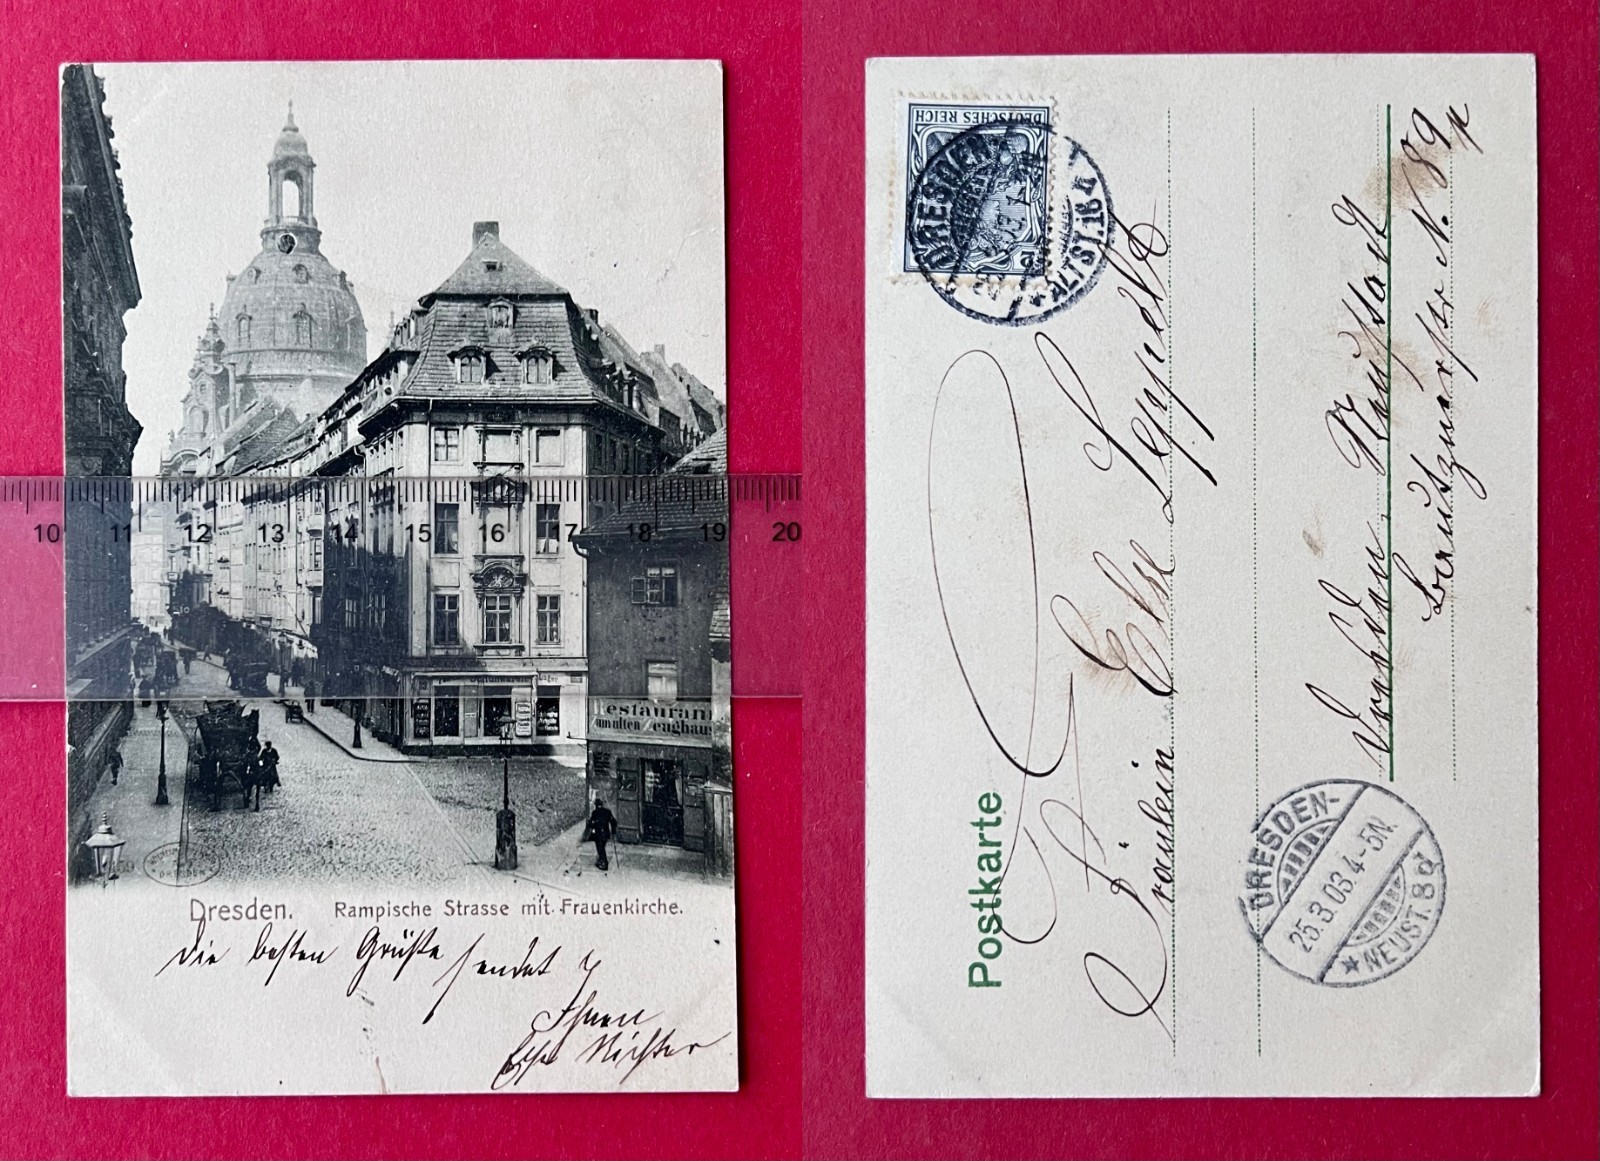 10 11 12 13 14 15 16 17 18 19 20
Restaurant
zum alten Zeughaus
Dresden. Rampische Strasse mit Frauenkirche.
Die besten Grüße sendet
Ihnen
Else Richter
DEUTSCHES REICH
DRESDEN
ALTST. 16
Postkarte
Fräulein Else Seppelt
Dresden Neustadt
Bautznerstr N. 89
DRESDEN-
25.3.03.4-5N.
NEUST. 8 g